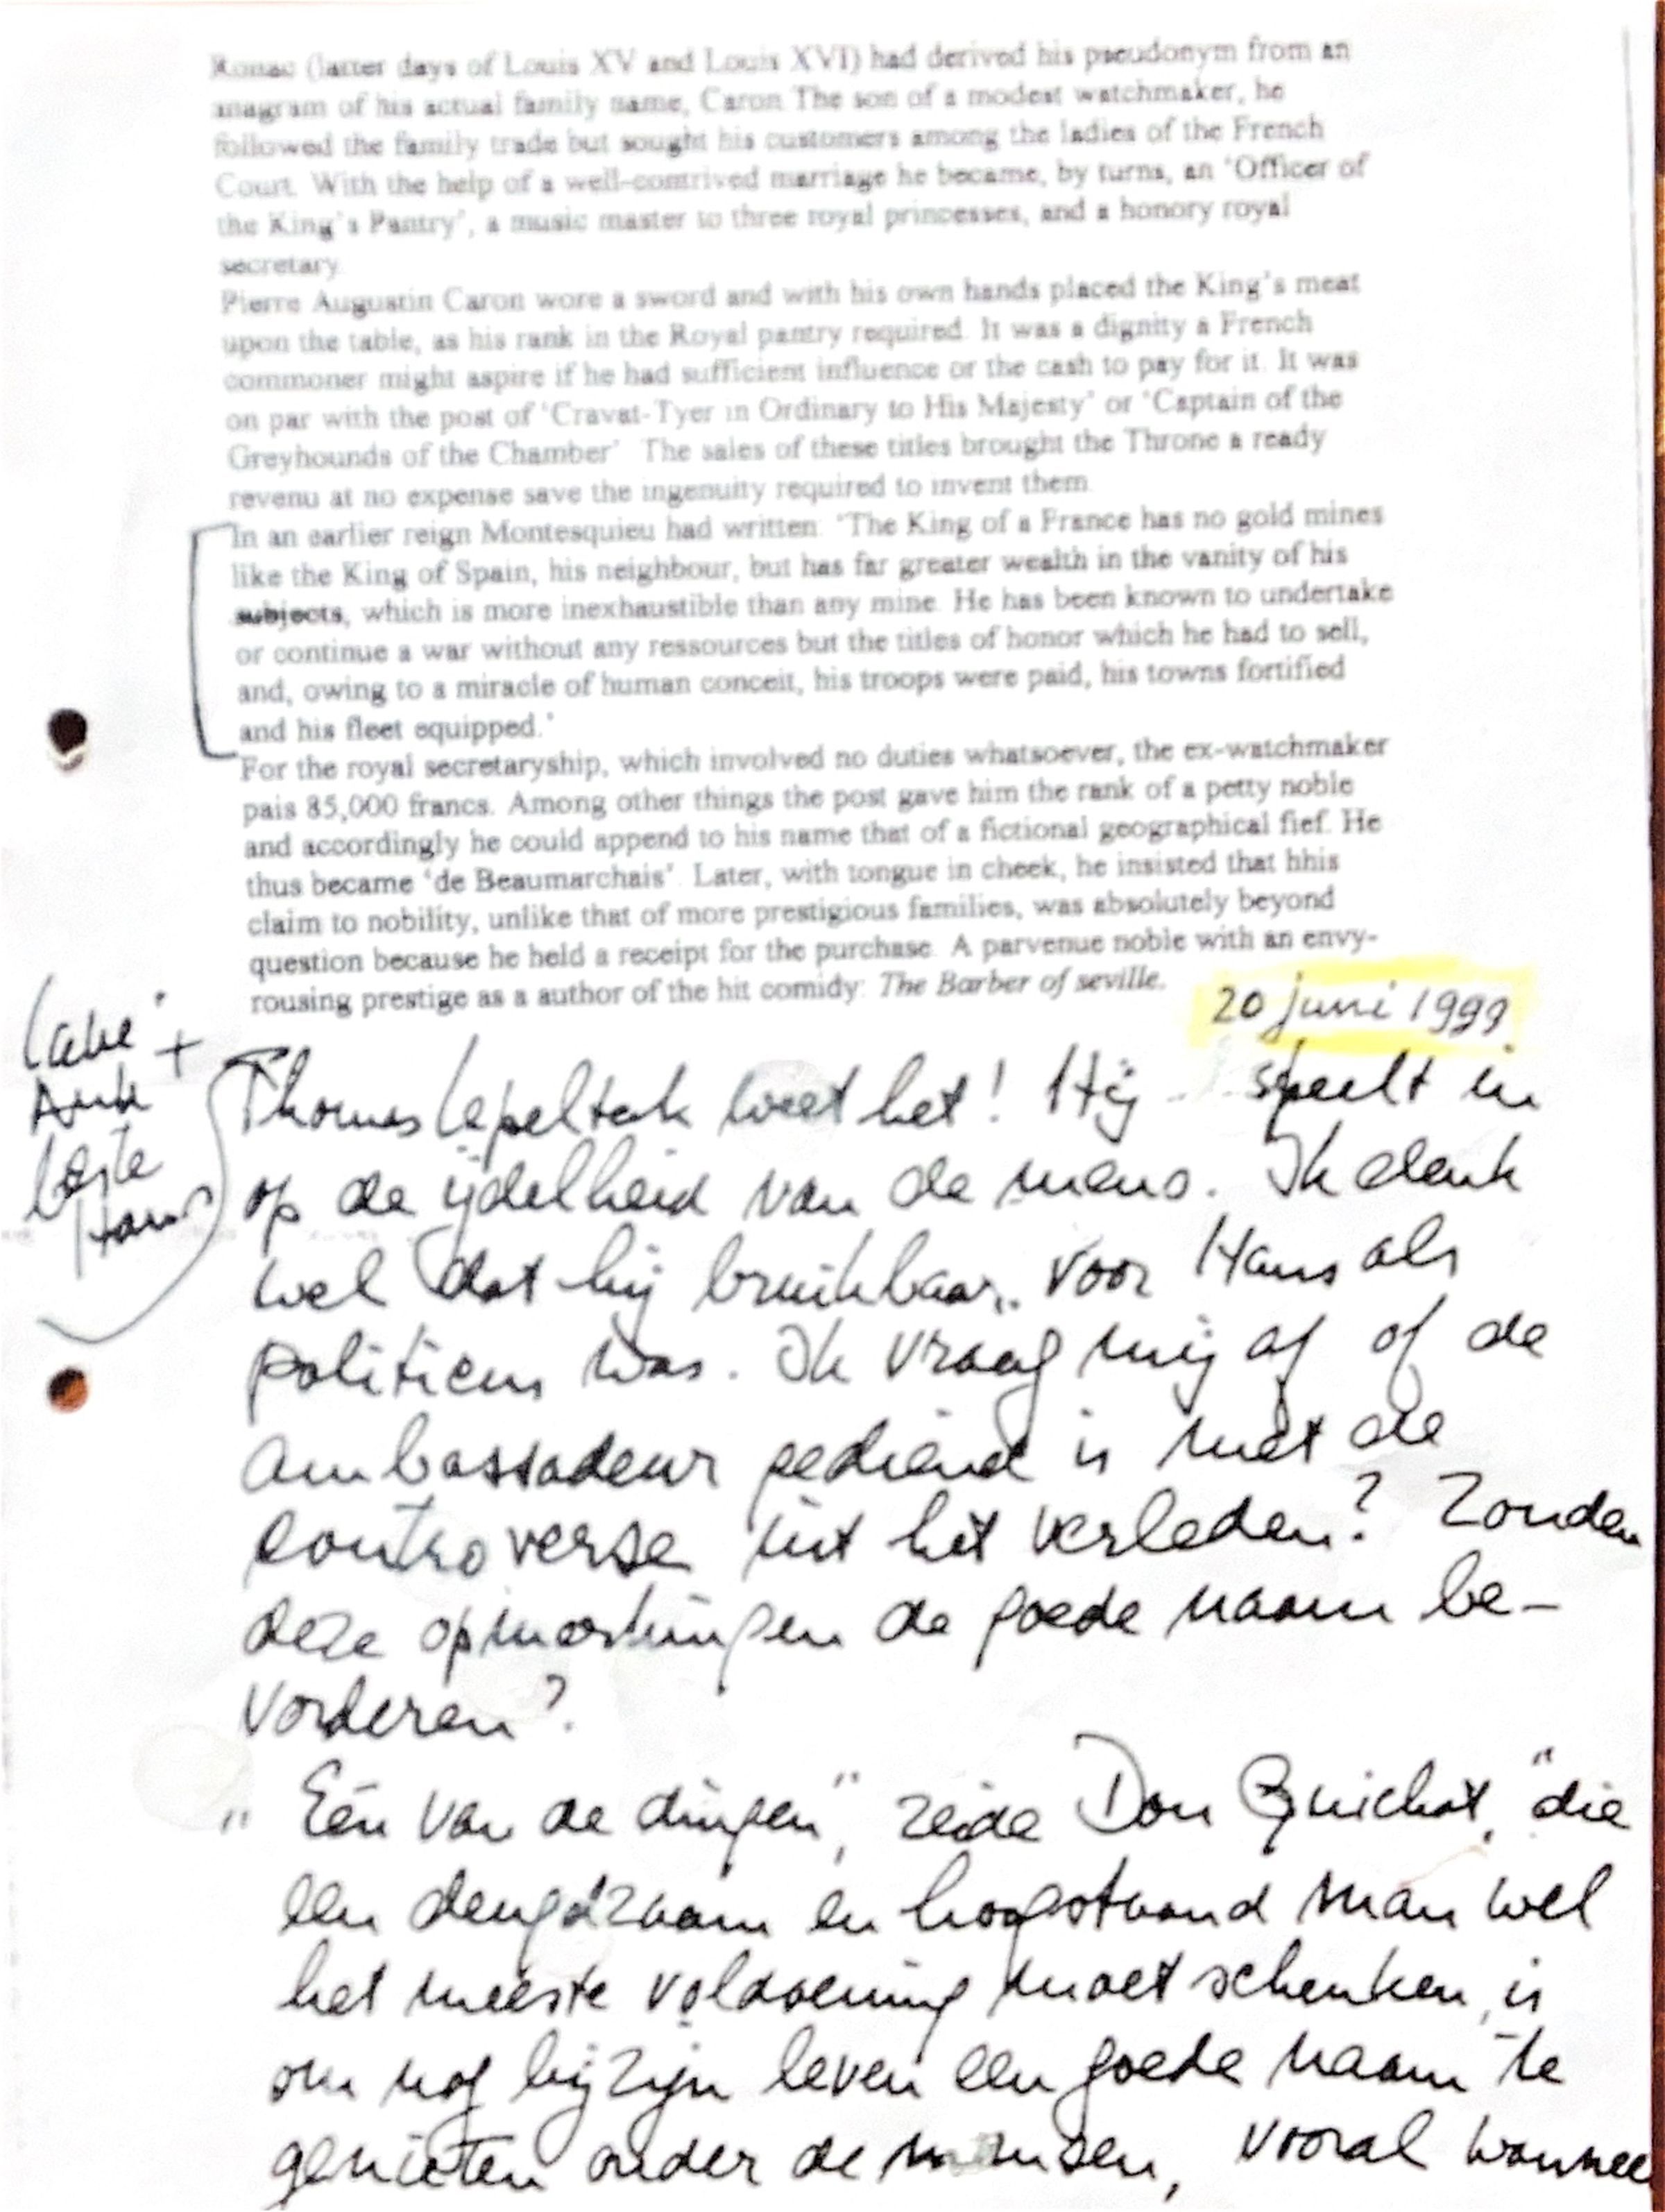 Ronac (latter days of Louis XV and Louis XVI) had derived his pseudonym from an
anagram of his actual family name, Caron. The son of a modest watchmaker, he
followed the family trade but sought his customers among the ladies of the French
Court. With the help of a well-contrived marriage he became, by turns, an 'Officer of
the King's Pantry', a music master to three royal princesses, and a honory royal
secretary.
Pierre Augustin Caron wore a sword and with his own hands placed the King's meat
upon the table, as his rank in the Royal pantry required. It was a dignity a French
commoner might aspire if he had sufficient influence or the cash to pay for it. It was
on par with the post of 'Cravat-Tyer in Ordinary to His Majesty' or 'Captain of the
Greyhounds of the Chamber'. The sales of these titles brought the Throne a ready
revenu at no expense save the ingenuity required to invent them.
In an earlier reign Montesquieu had written: 'The King of a France has no gold mines
like the King of Spain, his neighbour, but has far greater wealth in the vanity of his
subjects, which is more inexhaustible than any mine. He has been known to undertake
or continue a war without any ressources but the titles of honor which he had to sell,
and, owing to a miracle of human conceit, his troops were paid, his towns fortified
and his fleet equipped.'
For the royal secretaryship, which involved no duties whatsoever, the ex-watchmaker
pais 85,000 francs. Among other things the post gave him the rank of a petty noble
and accordingly he could append to his name that of a fictional geographical fief. He
thus became 'de Beaumarchais'. Later, with tongue in cheek, he insisted that hhis
claim to nobility, unlike that of more prestigious families, was absolutely beyond
question because he held a receipt for the purchase. A parvenue noble with an envy-
rousing prestige as a author of the hit comidy: The Barber of seville.
20 juni 1999.
+
beste
Hans
Thomas Lepeltak weet het! Hij speelt in
op de ijdelheid van de mens. Ik denk
wel dat hij bruikbaar voor Hans als
politicus was. Ik vraag mij af of de
ambassadeur gediend is met de
controverse uit het verleden? Zouden
deze opmerkingen de goede naam be-
vorderen?
"Eén van de dingen", zeide Don Quichot, "die
een deugdzaam en hoogstaand man wel
het meeste voldoening moet schenken, is
om nog bij zijn leven een goede naam te
genieten onder de mensen, vooral wannee